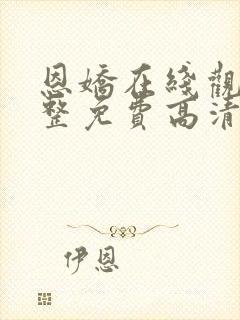 恩嬌在綫觀
整免費高清
伊恩